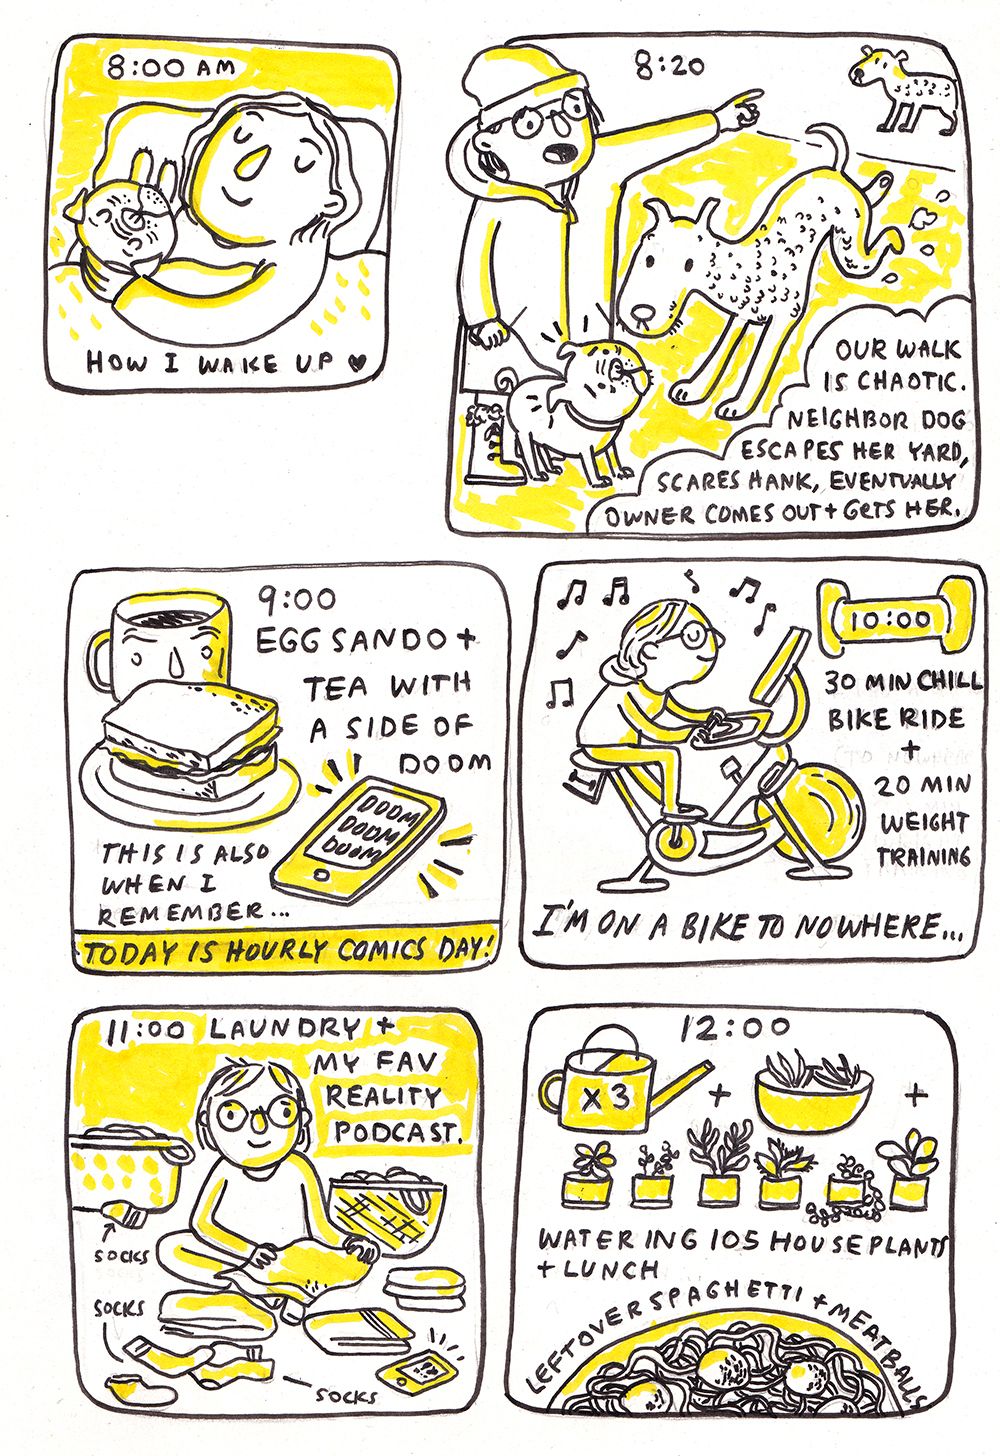 8:00 AM
HOW I WAKE UP ♥
8:20
OUR WALK
IS CHAOTIC.
NEIGHBOR DOG
ESCAPES HER YARD,
SCARES HANK, EVENTUALLY
OWNER COMES OUT + GETS HER.
9:00
EGG SANDO +
TEA WITH
A SIDE OF
DOOM
DOOM
DOOM
DOOM
THIS IS ALSO
WHEN I
REMEMBER...
TODAY IS HOURLY COMICS DAY!
10:00
30 MIN CHILL
BIKE RIDE
+
20 MIN
WEIGHT
TRAINING
I'M ON A BIKE TO NOWHERE...
11:00 LAUNDRY +
MY FAV
REALITY
PODCAST.
SOCKS
SOCKS
SOCKS
12:00
X3 + +
WATERING 105 HOUSEPLANTS
+ LUNCH
LEFTOVER SPAGHETTI + MEATBALLS